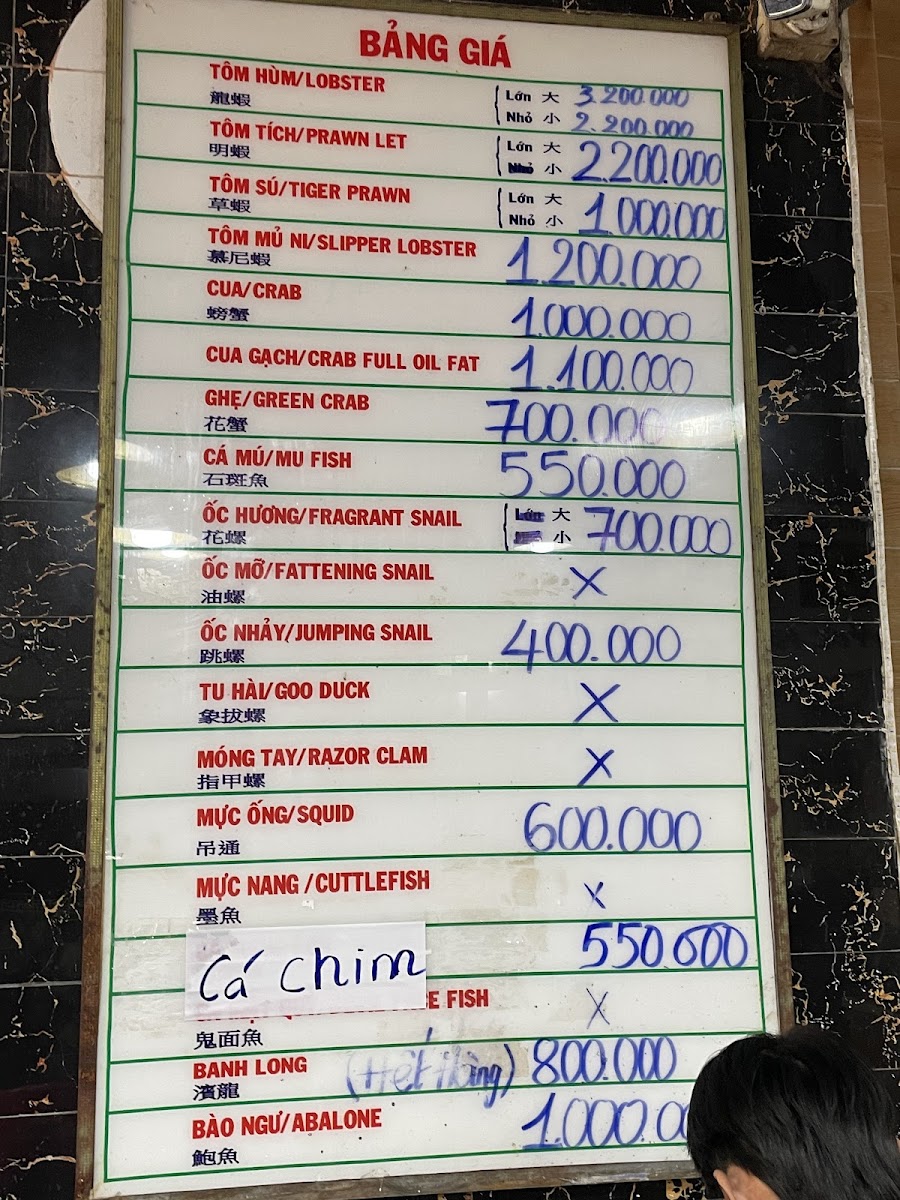 BẢNG GIÁ
TÔM HÙM/LOBSTER
龍蝦
Lớn 大 3.200.000
Nhỏ 小 2.200.000
TÔM TÍCH/PRAWN LET
明蝦
Lớn 大 2.200.000
小
TÔM SÚ/TIGER PRAWN
草蝦
Lớn 大 1.000.000
Nhỏ 小
TÔM MỦ NI/SLIPPER LOBSTER 1.200.000
慕尼蝦
CUA/CRAB 1.000.000
螃蟹
CUA GẠCH/CRAB FULL OIL FAT 1.100.000
GHẸ/GREEN CRAB 700.000
花蟹
CÁ MÚ/MU FISH 550.000
石斑魚
ỐC HƯƠNG/FRAGRANT SNAIL
花螺
Lớn 大 700.000
小
ỐC MỠ/FATTENING SNAIL X
油螺
ỐC NHẢY/JUMPING SNAIL 400.000
跳螺
TU HÀI/GOO DUCK X
象拔螺
MÓNG TAY/RAZOR CLAM X
指甲螺
MỰC ỐNG/SQUID 600.000
吊通
MỰC NANG /CUTTLEFISH X
墨魚
Cá chim 550.000
FISH X
鬼面魚
BANH LONG (Hết hàng) 800.000
濱龍
BÀO NGƯ/ABALONE 1.000.0
鮑魚